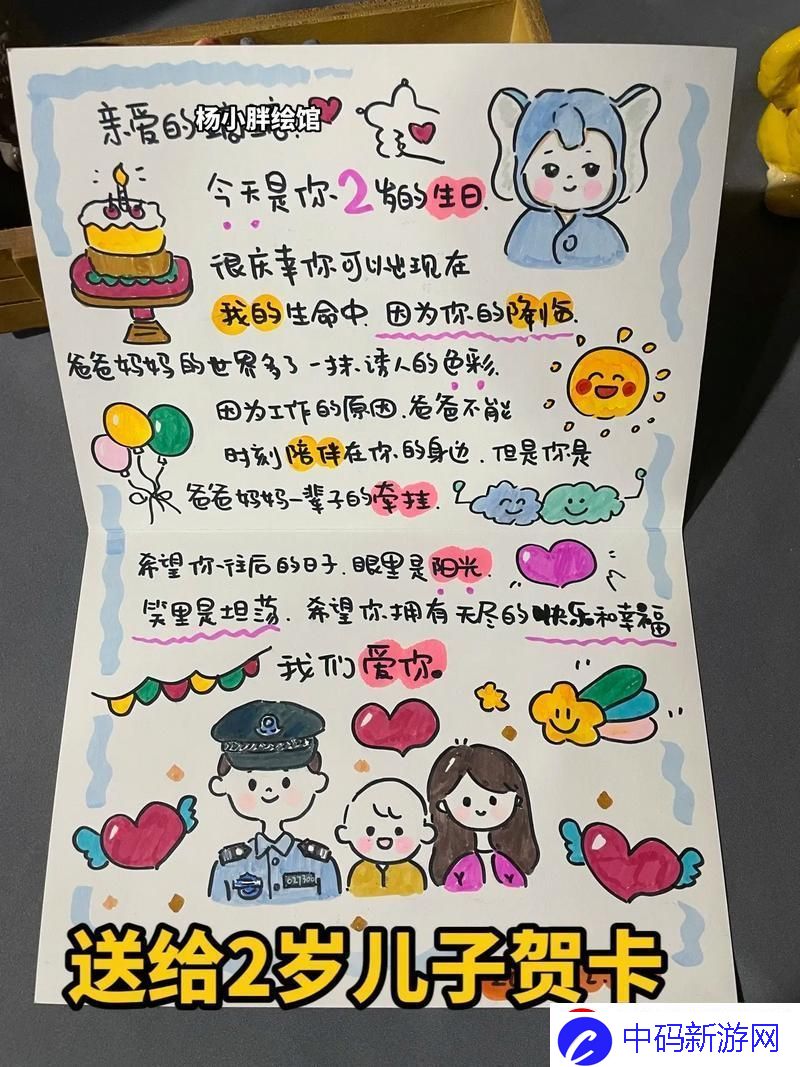 亲爱的
杨小胖绘馆
今天是你2岁的生日.
很庆幸你可以出现在
我的生命中.因为你的降临.
爸爸妈妈的世界多了一抹诱人的色彩.
因为工作的原因.爸爸不能
时刻陪伴在你的身边.但是你是
爸爸妈妈一辈子的牵挂.
希望你往后的日子.眼里是阳光.
笑里是坦荡.希望你拥有无尽的快乐和幸福
我们爱你。
送给2岁儿子贺卡
中码新游网